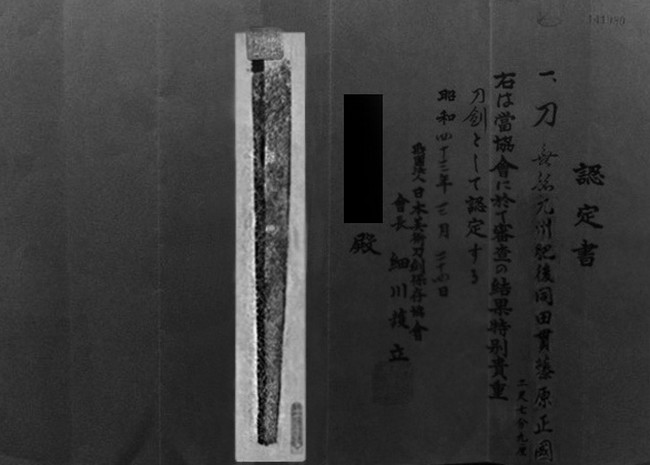 141980
認定書
一、刀 銘九州肥後同田貫藤原正國
二尺七分九厘
右は當協會に於て審査の結果特別貴重
刀剣として認定する
昭和四十三年 月 十四日
財團法人日本美術刀剣保存協會
會長 細川護立
殿